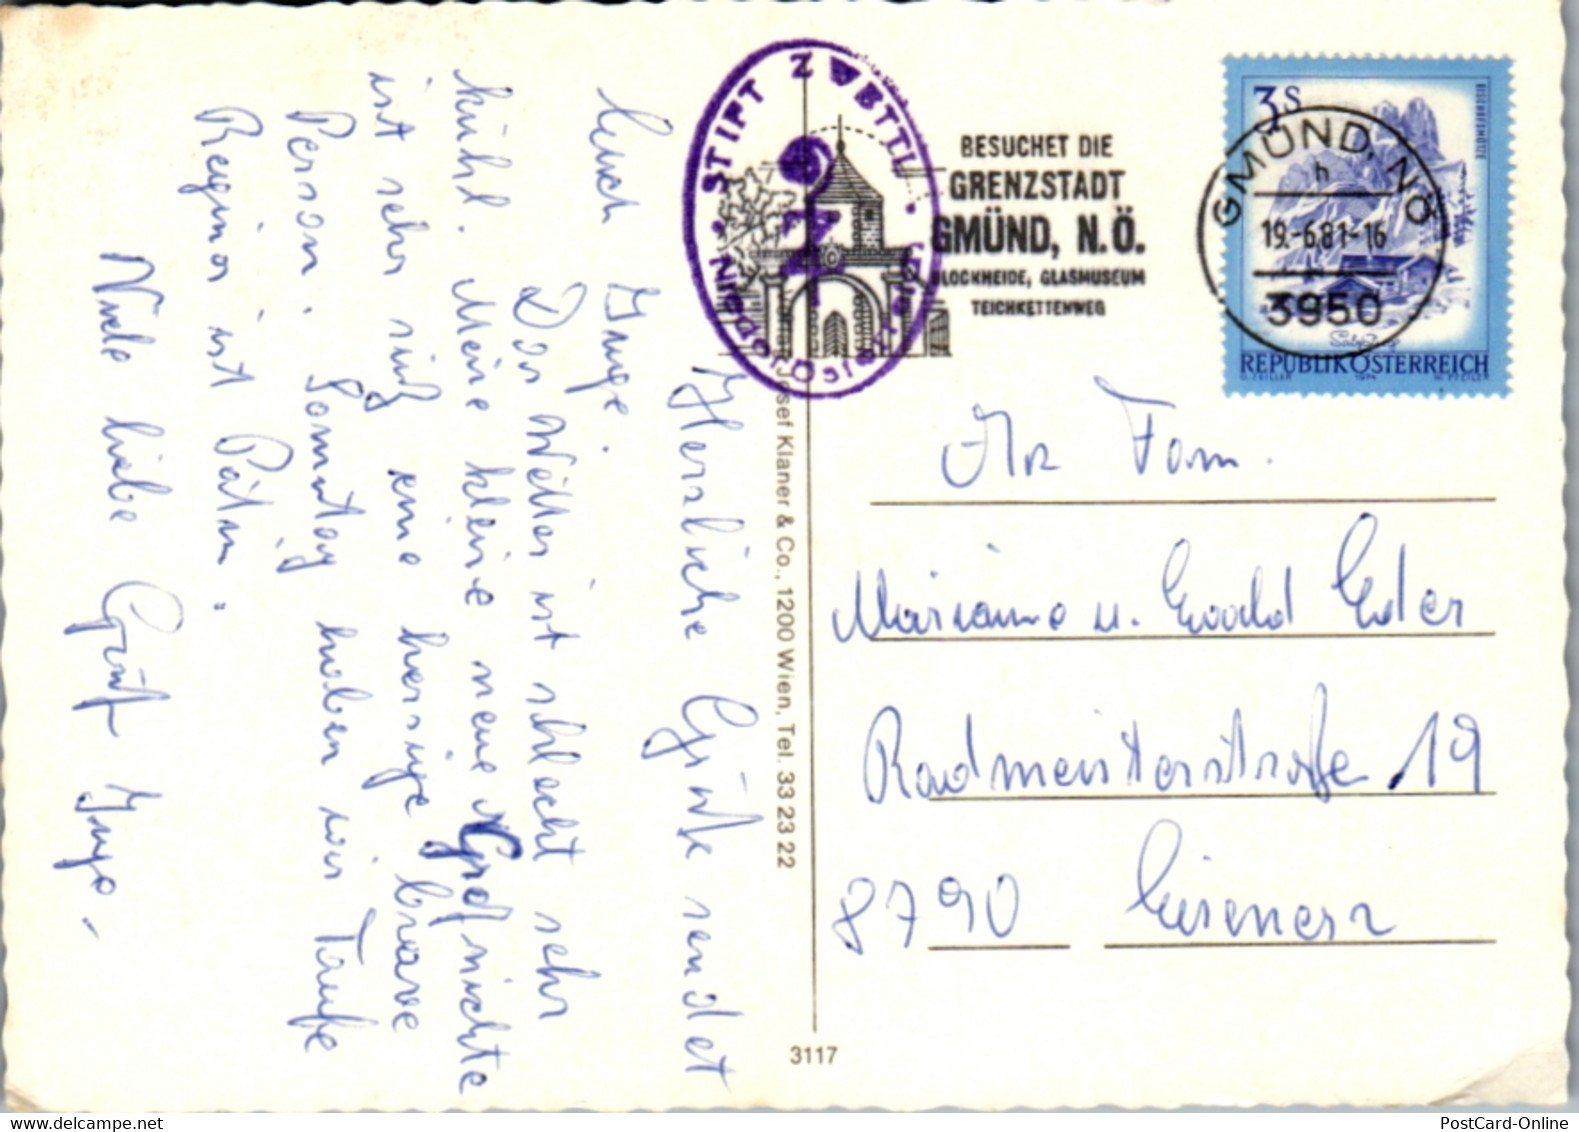 Herzliche Grüße sendet
Euch Inge.
Das Wetter ist schlecht sehr
kühl. Meine kleine neue Großnichte
ist sehr süß eine herzige brave
Person. Sonntag haben wir Taufe
Regina ist Patin.
Viele liebe Grüße Inge.
STIFT ZWETTL
Niederösterreich
BESUCHET DIE
GRENZSTADT
GMÜND, N.Ö.
BLOCKHEIDE, GLASMUSEUM
TEICHKETTENWEG
3S
BISCHOFSMÜTZE
GMÜND, NÖ
h
19.-6.81-16
3950
Salzburg
REPUBLIK ÖSTERREICH
1974
Josef Klaner & Co., 1200 Wien, Tel. 33 23 22
3117
An Fam.
Marianne u. Ewald Eder
Radmeisterstraße 19
8790 Eisenerz
PostCard-Online